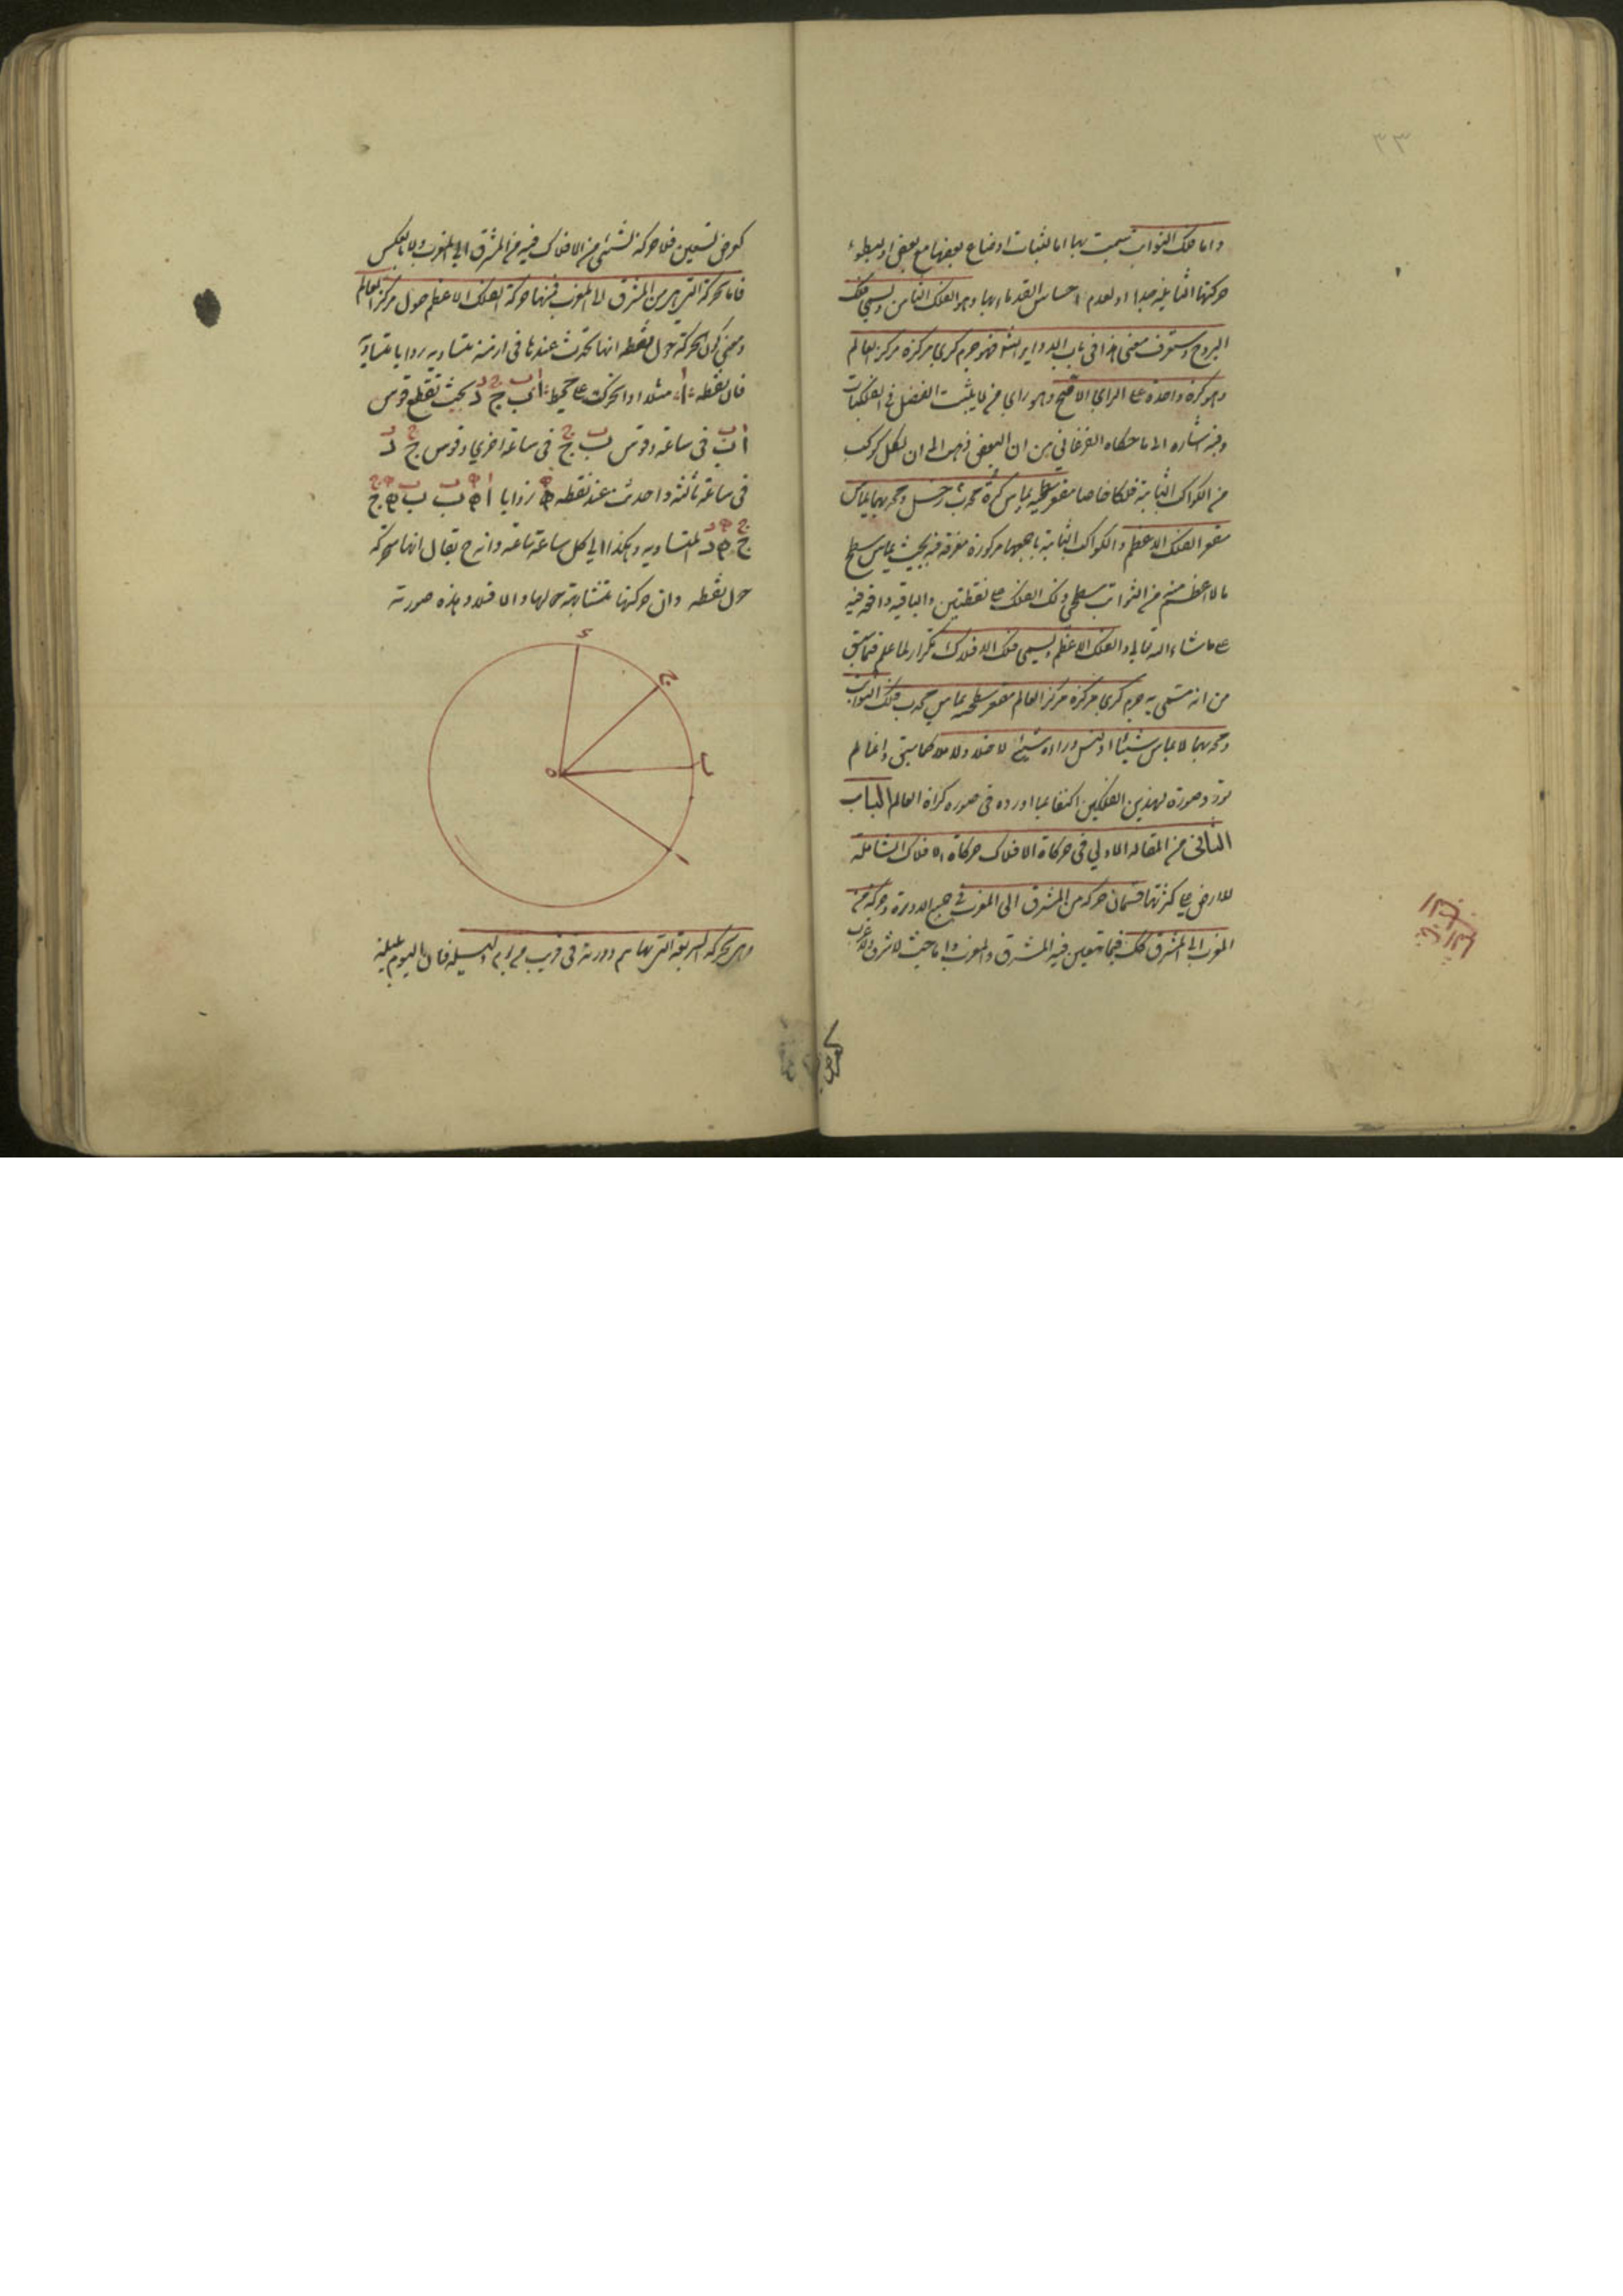 ٣٣
واما فلك الثوابت سميت بها اما لثبات اوضاع بعضها مع بعض او لبطوء
حركتها الثانية جدا او لعدم احساس القدماء بها وهو الفلك الثامن ويسمى فلك
البروج وستعرف معنى هذا في باب الدواير فهو جرم كرى مركزه مركز العالم
وهو كرة واحدة على الراي الاصح وهو راي من لا يثبت الفضل في الفلكيات
وفيه اشارة الى ما حكاه الفرغاني من ان البعض ذهب الى ان لكل كوكب
من الكواكب الثابتة فلكا خاصا مقعر سطحيه يماس كرة محدب زحل ومحدبهما يماس
مقعر الفلك الاعظم والكواكب الثابتة باجمعها مركوزة مغرقة فيه بحيث يماس سطح
ما لا اعظم منه من الثوابت سطحى ذلك الفلك على نقطتين والباقية واقعة فيه
على ما شاء الله تعالى والفلك الاعظم ويسمى فلك الافلاك تكرار لما علم فيما سبق
من انه مسمى به جرم كرى مركزه مركز العالم مقعر سطحيه يماس محدب فلك الثوابت
ومحدبهما لا يماس شيئا اذ ليس وراءه شيئ لا خلاء ولا ملاء كما سبق وانما لم
يورد صورة لهذين الفلكين اكتفاء بما اورده في صورة كرات العالم الباب
الثاني من المقالة الاولى في حركاة الافلاك حركاة الافلاك الشاملة
للارض على كثرتها قسمان حركة من المشرق الى المغرب في جميع الدورة وحركة من
المغرب الى المشرق كذلك فيما يتعين فيه المشرق والمغرب واما حيث لا شرق ولا غرب
كعرض
كعرض تسعين فلا حركة لشئ من الافلاك فيه من المشرق الى المغرب ولا بالعكس
فاما الحركة التي هي من المشرق الى المغرب فمنها حركة الفلك الاعظم حول مركز العالم
ومعنى كون الحركة حول نقطة انها تحدث عندها في ازمنة متساوية زوايا متساوية
فان نقطة ا مثلا اذا تحركت على محيط ا ب ج د بحيث تقطع قوس
ا ب في ساعة وقوس ب ج في ساعة اخرى وقوس ج د
في ساعة ثالثة واحدثت عند نقطة ه زوايا ا ه ب ب ه ج
ج ه د المتساوية وهكذا الى كل ساعة ساعة وانه ح يقال انها متحركة
حول نقطة وان حركتها متشابهة حولها والا فلا وهذه صورته
د
ج
ب
ه
ا
وهي الحركة السريعة التي بها يتم دورته في قريب من يوم بليلته فان اليوم بليلته